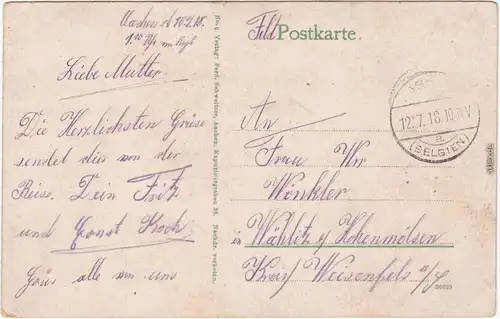 Aachen d 10.7.18.
1.10 Uhr
Liebe Mutter
Die Herzlichsten Grüse
sendet dir von der
Reise. Dein Fritz
und Ernst Koch
Grüs alle von uns
No. 9 Verlag: Ferd. Schweitzer, Aachen, Kapuzinergraben 38. Nachdr. verboten.
Feld Postkarte.
12.7.18.10
a.
(BELGIEN)
An
Frau Ww
Winkler
in Wählitz b/ Hohenmölsen
Kreis Weisenfels a/S